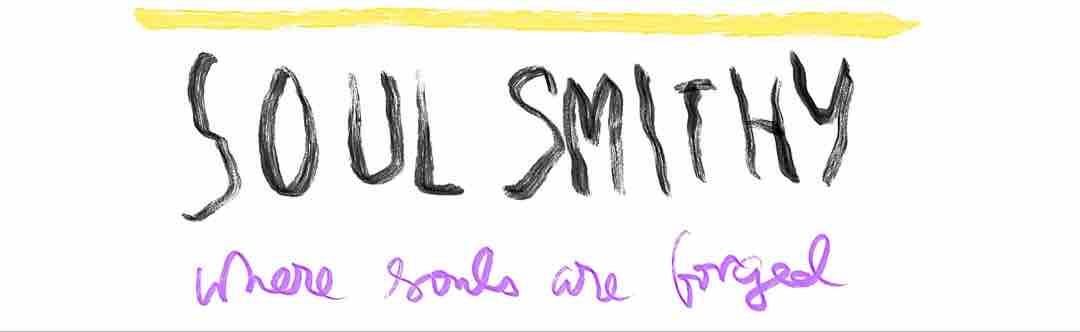 SOUL SMITHY
where souls are forged